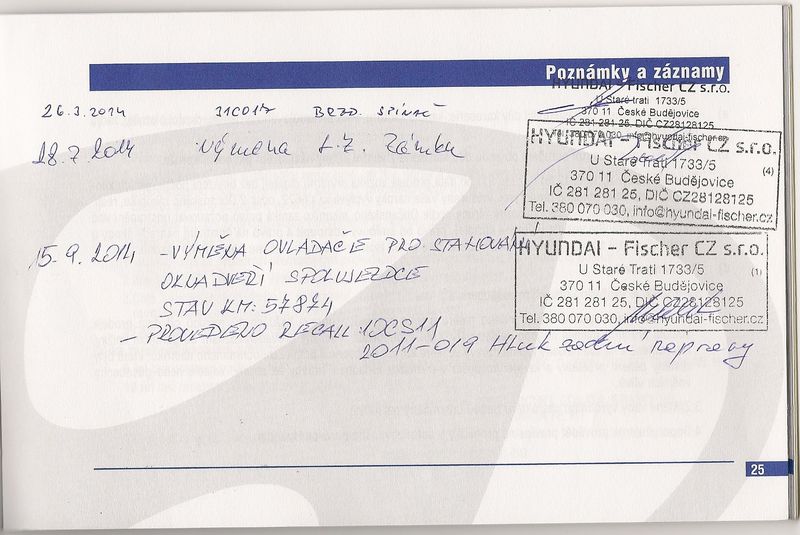 Poznámky a záznamy
HYUNDAI - Fischer CZ s.r.o.
U Staré trati 1733/5
370 11 České Budějovice
IČ 281 281 25, DIČ CZ28128125
26.3.2014 31C017 BRZD. SPÍNAČ
HYUNDAI - Fischer CZ s.r.o.
U Staré Trati 1733/5
(4)
370 11 České Budějovice
IČ 281 281 25, DIČ CZ28128125
Tel. 380 070 030, info@hyundai-fischer.cz
28.7.2014 Výměna L.Z. Zámku
HYUNDAI - Fischer CZ s.r.o.
U Staré Trati 1733/5
(1)
370 11 České Budějovice
IČ 281 281 25, DIČ CZ28128125
Tel. 380 070 030, info@hyundai-fischer.cz
15.9.2014 - VÝMĚNA OVLADAČE PRO STAHOVÁNÍ
OKNA DVEŘÍ SPOLUJEZDCE
STAV KM: 57874
- PROVEDENO RECALL: 10CS11
2011-019 Hluk zadní nápravy
25